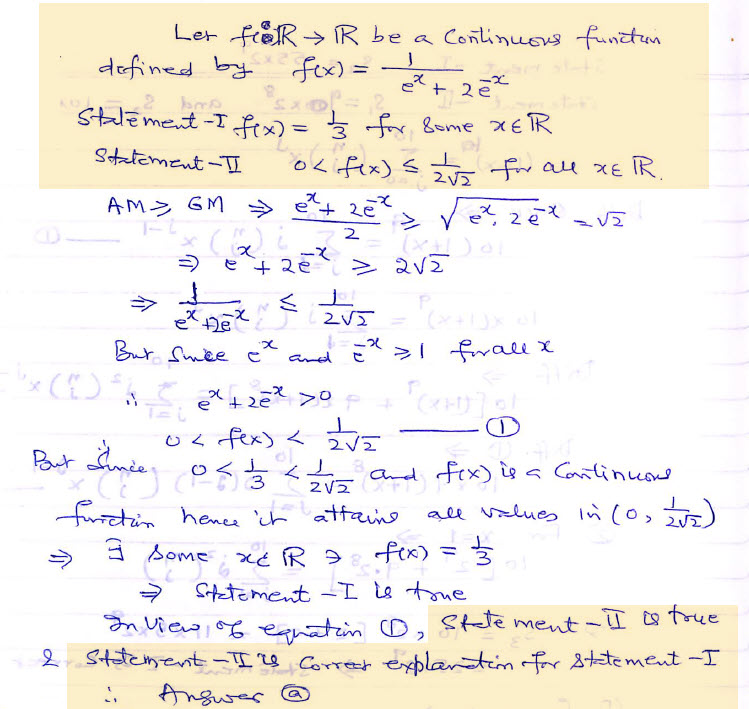 Let f: R → R be a Continuous function
defined by f(x) = 1/(e^x + 2e^-x)
Statement-I f(x) = 1/3 for some x ∈ R
Statement-II 0 < f(x) ≤ 1/(2√2) for all x ∈ R.
AM ≥ GM ⇒ (e^x + 2e^-x)/2 ≥ √(e^x. 2e^-x) = √2
⇒ e^x + 2e^-x ≥ 2√2
⇒ 1/(e^x + 2e^-x) ≤ 1/(2√2)
But Since e^x and e^-x ≥ 1 for all x
∴ e^x + 2e^-x > 0
0 < f(x) < 1/(2√2) —— ①
But Since 0 < 1/3 < 1/(2√2) and f(x) is a Continuous
function hence it attains all values in (0, 1/(2√2))
⇒ ∃ some x ∈ R ∋ f(x) = 1/3
⇒ Statement-I is true
In view of equation ①, Statement-II is true
& Statement-II is Correct explanation for Statement-I
∴ Answer ⓐ